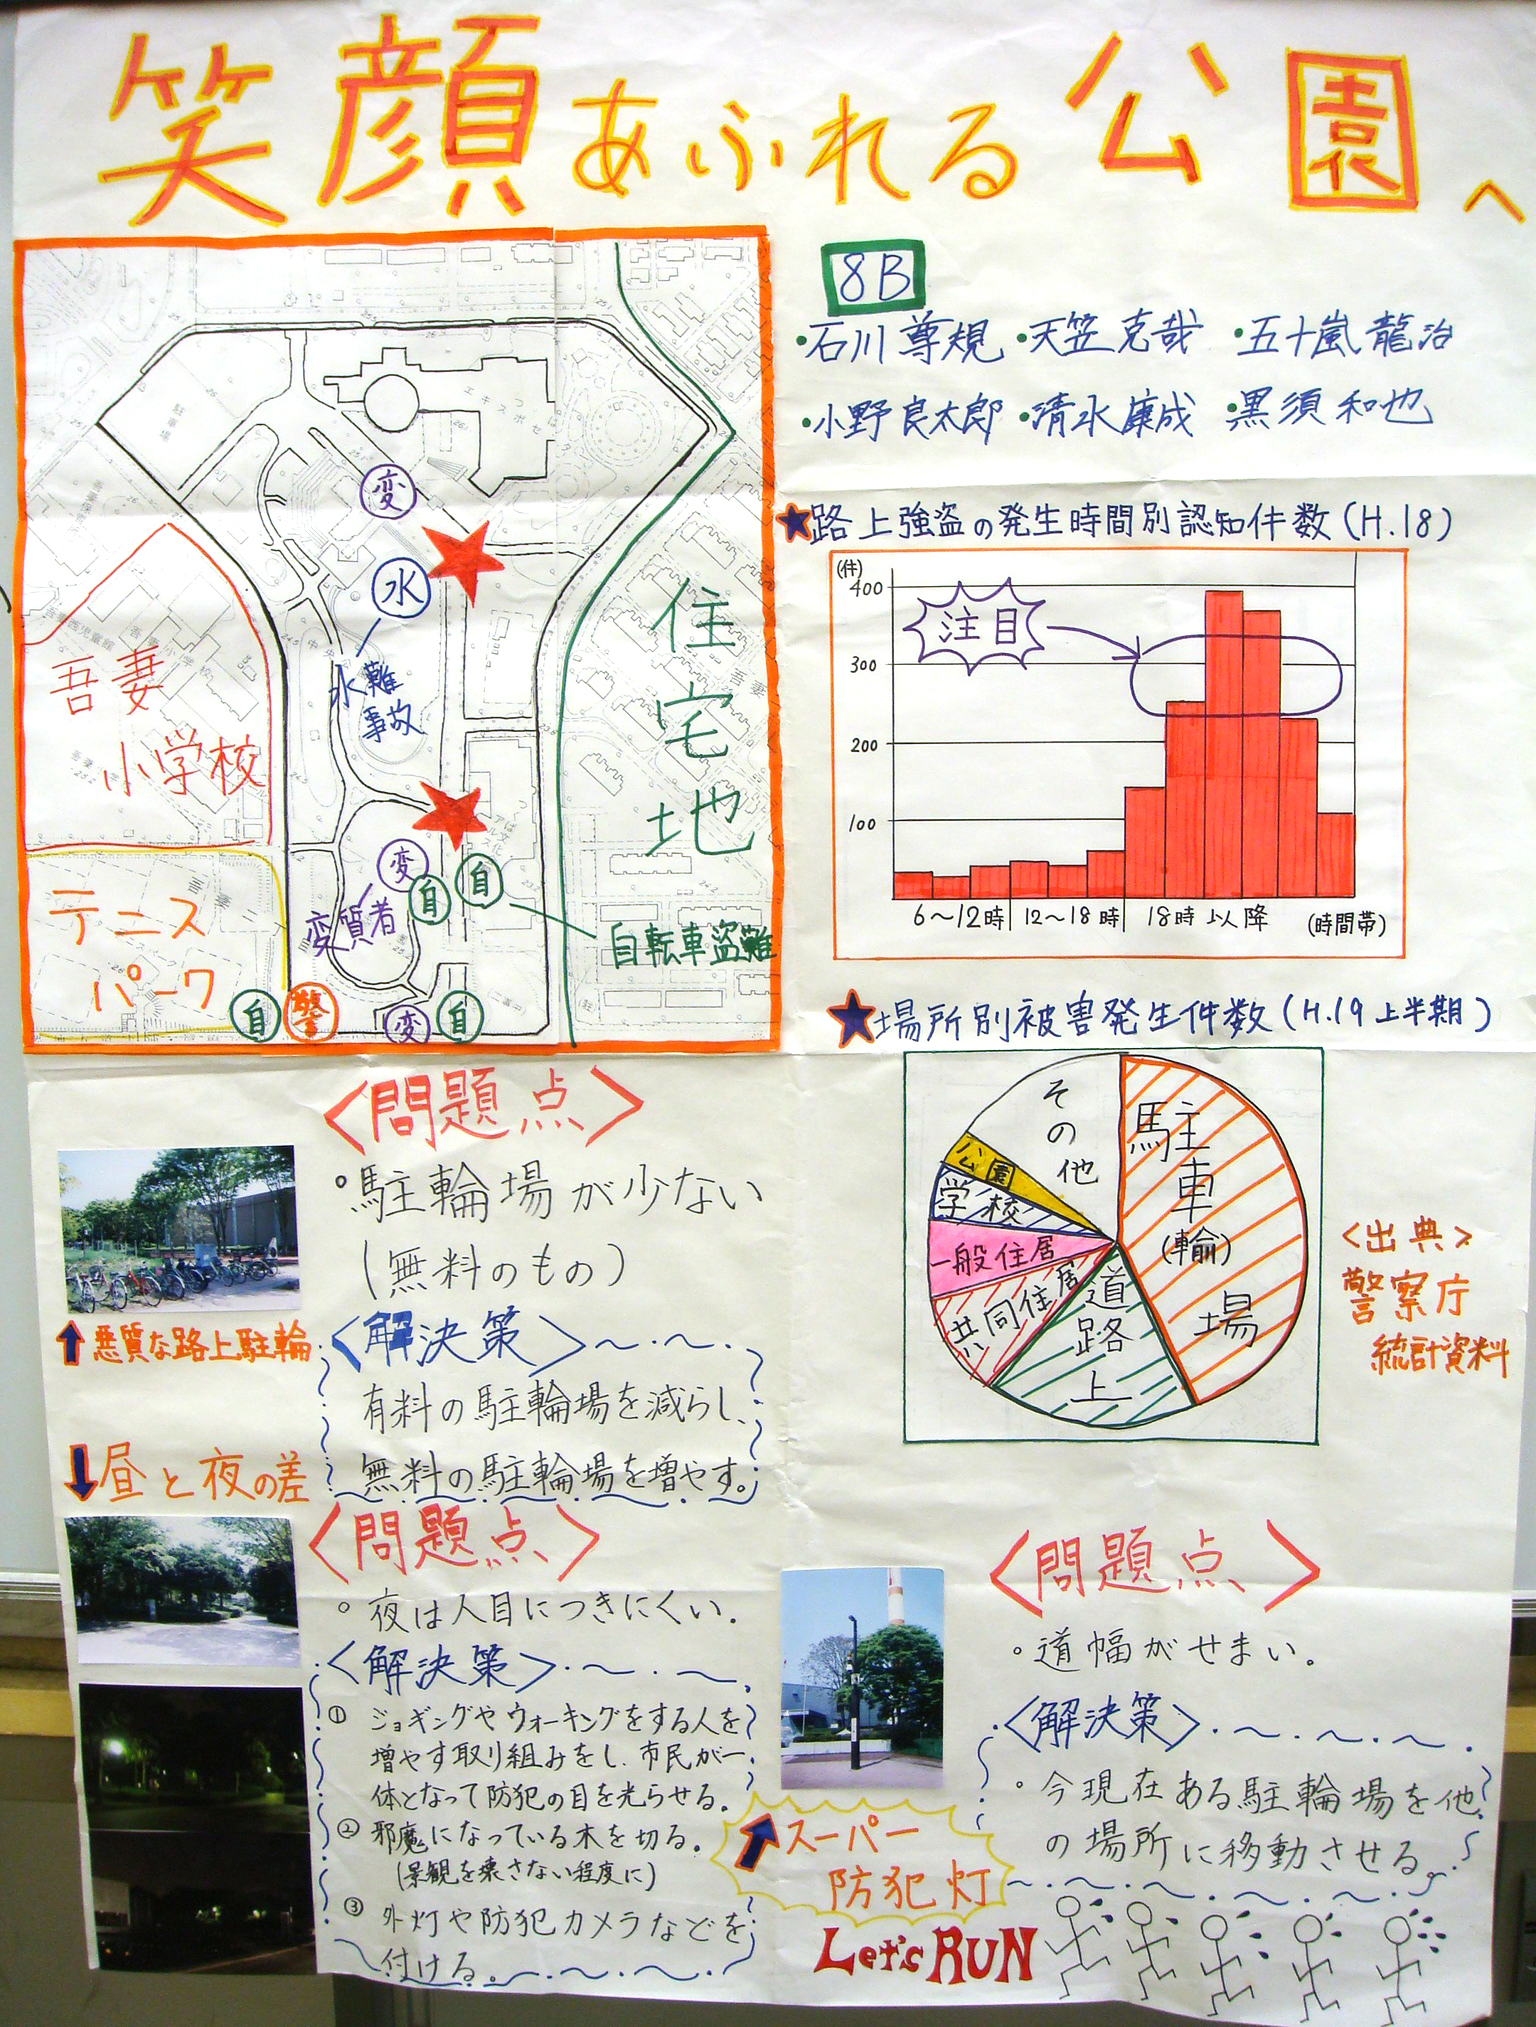 笑顔あふれる公園へ
8B
・石川尊規 ・天笠克哉 ・五十嵐龍治
・小野良太郎 ・清水康成 ・黒須和也
駐車場
つくばエキスポセ
変
水
水難
事故
住宅地
吾妻
小学校
テニス
パーク
変
自
自
変質者
自転車盗難
自
警
変
自
★路上強盗の発生時間別認知件数(H.18)
(件)
400
300
200
100
注目
6〜12時 12〜18時 18時以降 (時間帯)
★場所別被害発生件数(H.19上半期)
その他
公園
学校
一般住居
共同住居
道路上
駐車(輪)場
<出典>
警察庁
統計資料
<問題点>
・駐輪場が少ない
(無料のもの)
<解決策>
有料の駐輪場を減らし、
無料の駐輪場を増やす。
↑悪質な路上駐輪
↓昼と夜の差
<問題点>
・夜は人目につきにくい.
<解決策>
① ジョギングやウォーキングをする人を
増やす取り組みをし、市民が一
体となって防犯の目を光らせる.
② 邪魔になっている木を切る.
(景観を壊さない程度に)
③ 外灯や防犯カメラなどを
付ける。
↑スーパー
防犯灯
<問題点>
・道幅がせまい.
<解決策>
・今現在ある駐輪場を他
の場所に移動させる。
Let's RUN